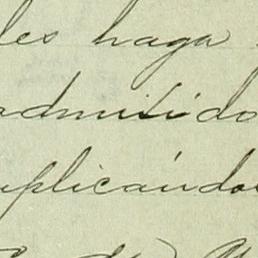 les haga
admitido
uplicándo